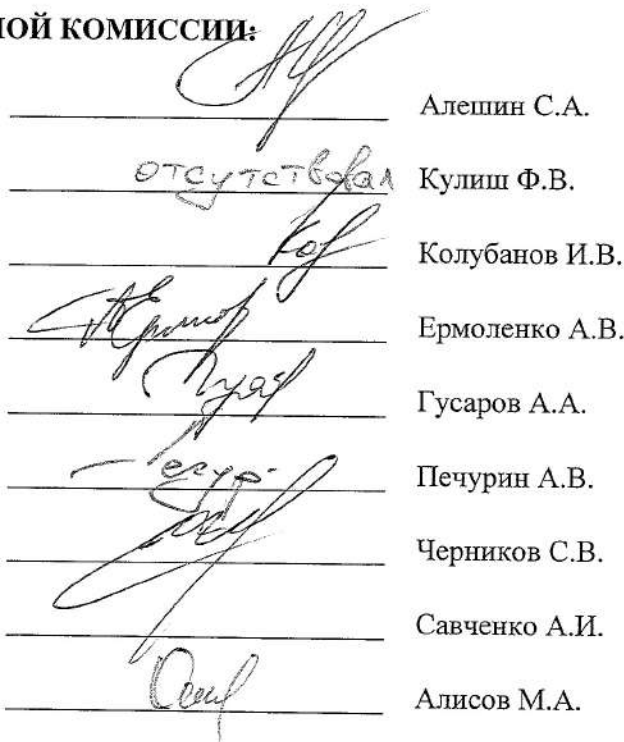 НОЙ КОМИССИИ:
Алешин С.А.
отсутствовал Кулиш Ф.В.
Колубанов И.В.
Ермоленко А.В.
Гусаров А.А.
Печурин А.В.
Черников С.В.
Савченко А.И.
Алисов М.А.